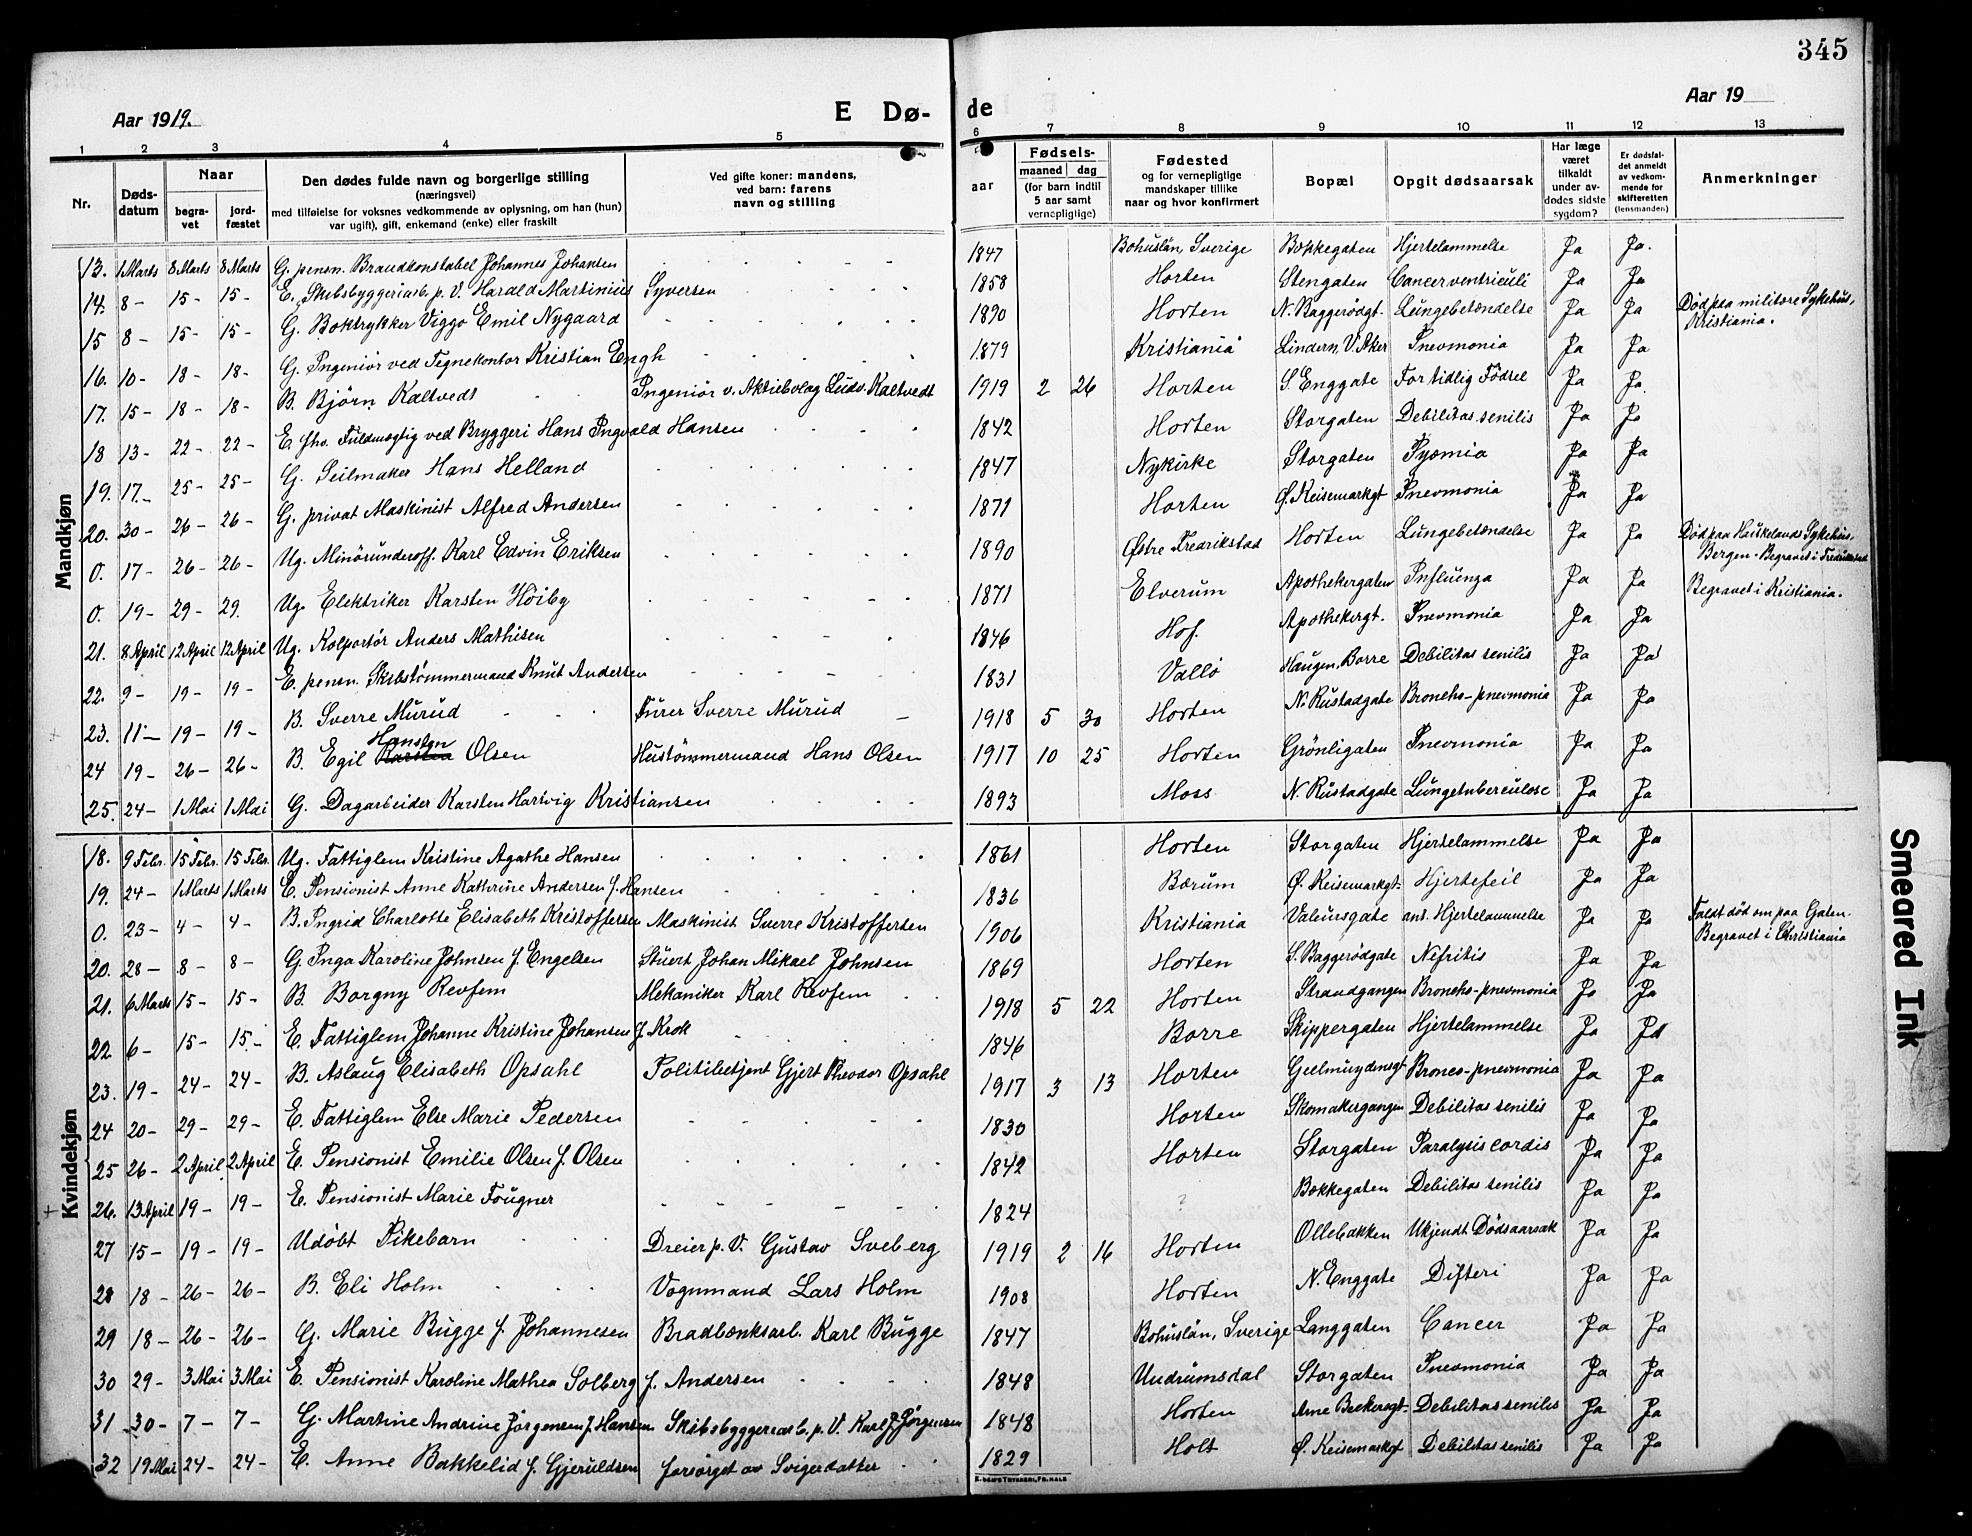 345
Aar 1919. E Dø- de Aar 19
1 2 3 4 5 6 7 8 9 10 11 12 13
Nr.
Døds-datum
Naar
begra-vet
jord-fæstet
Den dødes fulde navn og borgerlige stilling
(næringsvei)
med tilføielse for voksnes vedkommende av oplysning, om han (hun)
var ugift), gift, enkemand (enke) eller fraskilt
Ved gifte koner: mandens,
ved barn: farens
navn og stilling
aar
Fødsels-
maaned dag
(for barn indtil
5 aar samt
vernepligtige)
Fødested
og for vernepligtige
mandskaper tillike
naar og hvor konfirmert
Bopæl
Opgit dødsaarsak
Har læge
været
tilkaldt
under av-
dødes sidste
sygdom?
Er dødsfal-
det anmeldt
av vedkom-
mende for
skifteretten
(lensmanden)
Anmerkninger
Mandkjøn
13. 1 Marts 8 Marts 8 Marts G. pensn. Brandkonstabel Johannes Johansen 1847 Bohuslän, Sverige Bækkegaten Hjertelammelse Ja Ja.
14. 8 - 15 - 15 - E. Skibsbyggeriarb. p. V. Harald Martinius Syversen 1858 Horten Stengaten Cancer ventriculi Ja Ja
15 8 - 15 - 15 - G. Boktrykker Viggo Emil Nygaard 1890 Horten N. Baggerødgt. Lungebetændelse Ja Ja Død paa militære Sykehus, Kristiania.
16. 10 - 18 - 18 - G. Ingeniør ved Tegnekontor Kristian Engh 1879 Kristiania Lindern, V. Aker Pnevmonia Ja Ja
17. 15 - 18 - 18 - B. Bjørn Kaltvedt Ingeniør v. Aktiebolag Ludv. Kaltvedt 1919 2 26 Horten S. Enggate For tidlig Fødsel Ja Ja
18 13 - 22 - 22 - E. fhv. Fuldmægtig ved Bryggeri Hans Ingvald Hansen 1842 Horten Storgaten Debilitas senilis Ja Ja
19. 17 - 25 - 25 - G. Seilmaker Hans Helland 1847 Nykirke Storgaten Pyæmia Ja Ja
20. 30 - 26 - 26 - G. privat Maskinist Alfred Andersen 1871 Horten Ø. Keisemarkgt Pnevmonia Ja Ja
0. 17 - 26 - 26 - Ug. Minörunderoff. Karl Edvin Eriksen 1890 Østre Fredrikstad Horten Lungebetændelse Ja Ja Død paa Haukelands Sykehus, Bergen. Begravet i Fredrikstad
0. 19 - 29 - 29. Ug. Elektriker Karsten Höiby 1871 Elverum Apothekergaten Influenza Ja Ja Begravet i Kristiania.
21. 8 April 12 April 12 April Ug. Kolportör Anders Mathisen 1846 Hof. Apothekergt. Pnevmonia Ja Ja
22. 9 - 19 - 19 - E. pensn. Skibstømmermand Knut Andersen 1831 Vallö Haugen, Borre Debilitas senilis Ja Ja
23. 11 - 19 - 19 - B. Sverre Murud Furer Sverre Murud 1918 5 30 Horten N. Rustadgate Broncho-pnevmonia Ja Ja
24 19 - 26 - 26 - B. Egil Hansten Olsen Hustømmermand Hans Olsen 1917 10 25 Horten Grönligaten Pnevmonia Ja Ja
25. 24 - 1 Mai 1 Mai G. Dagarbeider Karsten Hartvig Kristiansen 1893 Moss N. Rustadgate Lungetuberculose Ja Ja
Kvindekjøn
18. 9 Febr. 15 Febr. 15 Febr. Ug. Fattiglem Kristine Agathe Hansen 1861 Horten Storgaten Hjertelammelse Ja Ja
19. 24 - 1 Marts 1 Marts E. Pensionist Anne Kathrine Andersen f. Hansen 1836 Bærum Ø. Keisemarkgt. Hjertefeil Ja Ja
0. 23 - 4 - 4 - B. Ingrid Charlotte Elisabeth Kristoffersen Maskinist Sverre Kristoffersen 1906 Kristiania Valeursgate ant. Hjertelammelse Ja Ja Faldt død om paa Gaten. Begravet i Christiania
20. 28 - 8 - 8 - G. Inga Karoline Johnsen f. Engelsen Stuert Johan Mikael Johnsen 1869 Horten S. Baggerødgate Nefritis Ja Ja
21. 6 Marts 15 - 15 - B. Borgny Revfem Mekaniker Karl Revfem 1918 5 22 Horten Strandgangen Broncho-pnevmonia Ja Ja
22 6 - 15 - 15 - E. Fattiglem Johanne Kristine Johansen f. Krok 1846 Borre Skippergaten Hjertelammelse Ja Ja
23. 19 - 24 - 24 - B. Aslaug Elisabeth Opsahl Politibetjent Gjert Theodor Opsahl 1917 3 13 Horten Geelmuydensgt Bronco-pnevmonia Ja Ja
24 20 - 29 - 29 - E. Fattiglem Else Marie Pedersen 1830 Horten Skomakergangen Debilitas senilis Ja Ja
25 26 - 2 April 2 April E. Pensionist Emilie Olsen f. Olsen 1842 Horten Storgaten Paralysis cordis Ja Ja
26. 13 April 19 - 19 - E. Pensionist Marie Fougner 1824 ? Bækkegaten Debilitas senilis Ja Ja
27 15 - 19 - 19 - Udöbt Pikebarn Dreier p. V. Gustav Sveberg 1919 2 16 Horten Ollebakken Ukjendt Dödsaarsak Ja Ja
28 18 - 26 - 26 - B. Eli Holm Vognmand Lars Holm 1908 Horten N. Enggate Difteri Ja Ja
29 18 - 26 - 26 - G. Marie Bugge f. Johannesen Bradbænksarb. Karl Bugge 1847 Bohuslän, Sverige Langgaten Cancer Ja Ja
30 29 - 3 Mai 3 Mai E. Pensionist Karoline Mathea Solberg f. Andersen 1848 Undrumsdal Storgaten Pnevmonia Ja Ja
31 30 - 7 - 7 - G. Martine Andrine Jørgensen f. Hansen Skibsbyggeriarb. p. V. Karl J. Jørgensen 1848 Horten Arne Beckersgt. Debilitas senilis Ja Ja
32 19 Mai 24 - 24 - E. Anne Bakkelid f. Gjeruldsen forsørget av Svigerdatter 1829 Holt Ø. Keisemarkgt Debilitas senilis Ja Ja
Smeared Ink